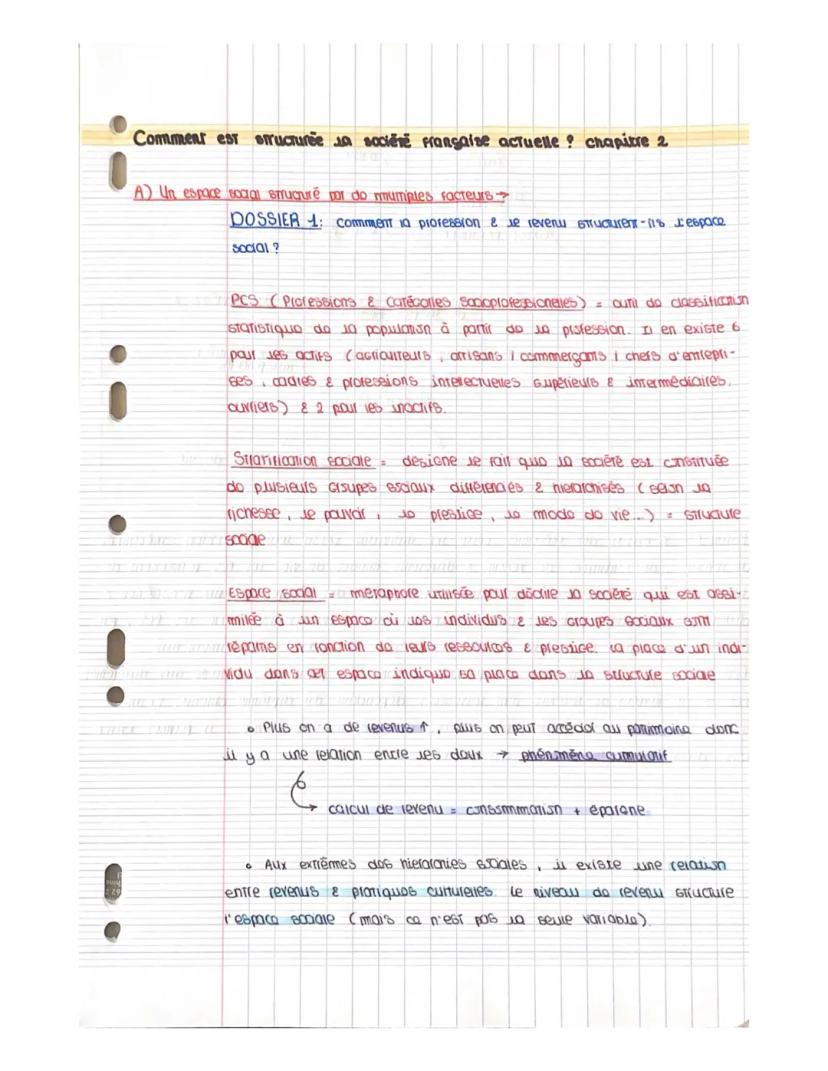 Comment est structurée la société française actuelle ? chapitre 2
A) Un espace social structuré par de multiples facteurs →
DOSSIER 1: Comment la profession & le revenu structurent-ils l'espace
social ?
PCS (Professions & Catégories Socioprofessionelles) = outil de classification
statistique de la population à partir de la profession. Il en existe 6
pour les actifs (agriculteurs, artisans / commerçants / chefs d'entrepri-
ses, cadres & professions intelectuelles supérieurs & intermédiaires,
ouvriers) & 2 pour les inactifs.
Stratification sociale = designe le fait que la société est constituée
de plusieurs groupes sociaux différenciés & hierarchisés (selon la
richesse, le pouvoir, le prestige, le mode de vie...) = structure
sociale
Espace social = métaphore utilisée pour décrire la société qui est assi-
milée à un espace où les individus & les groupes sociaux sont
répartis en fonction de leurs ressources & prestige. La place d'un indi-
vidu dans cet espace indique sa place dans la structure sociale
• Plus on a de revenus ↑, plus on peut accéder au patrimoine donc
il y a une relation entre les deux → phénomène cumulatif
↳ calcul de revenu = consommation + épargne
• Aux extrêmes des hierarchies sociales, il existe une relation
entre revenus & pratiques culturelles. Le niveau de revenu structure
l'espace sociale (mais ce n'est pas la seule variable).